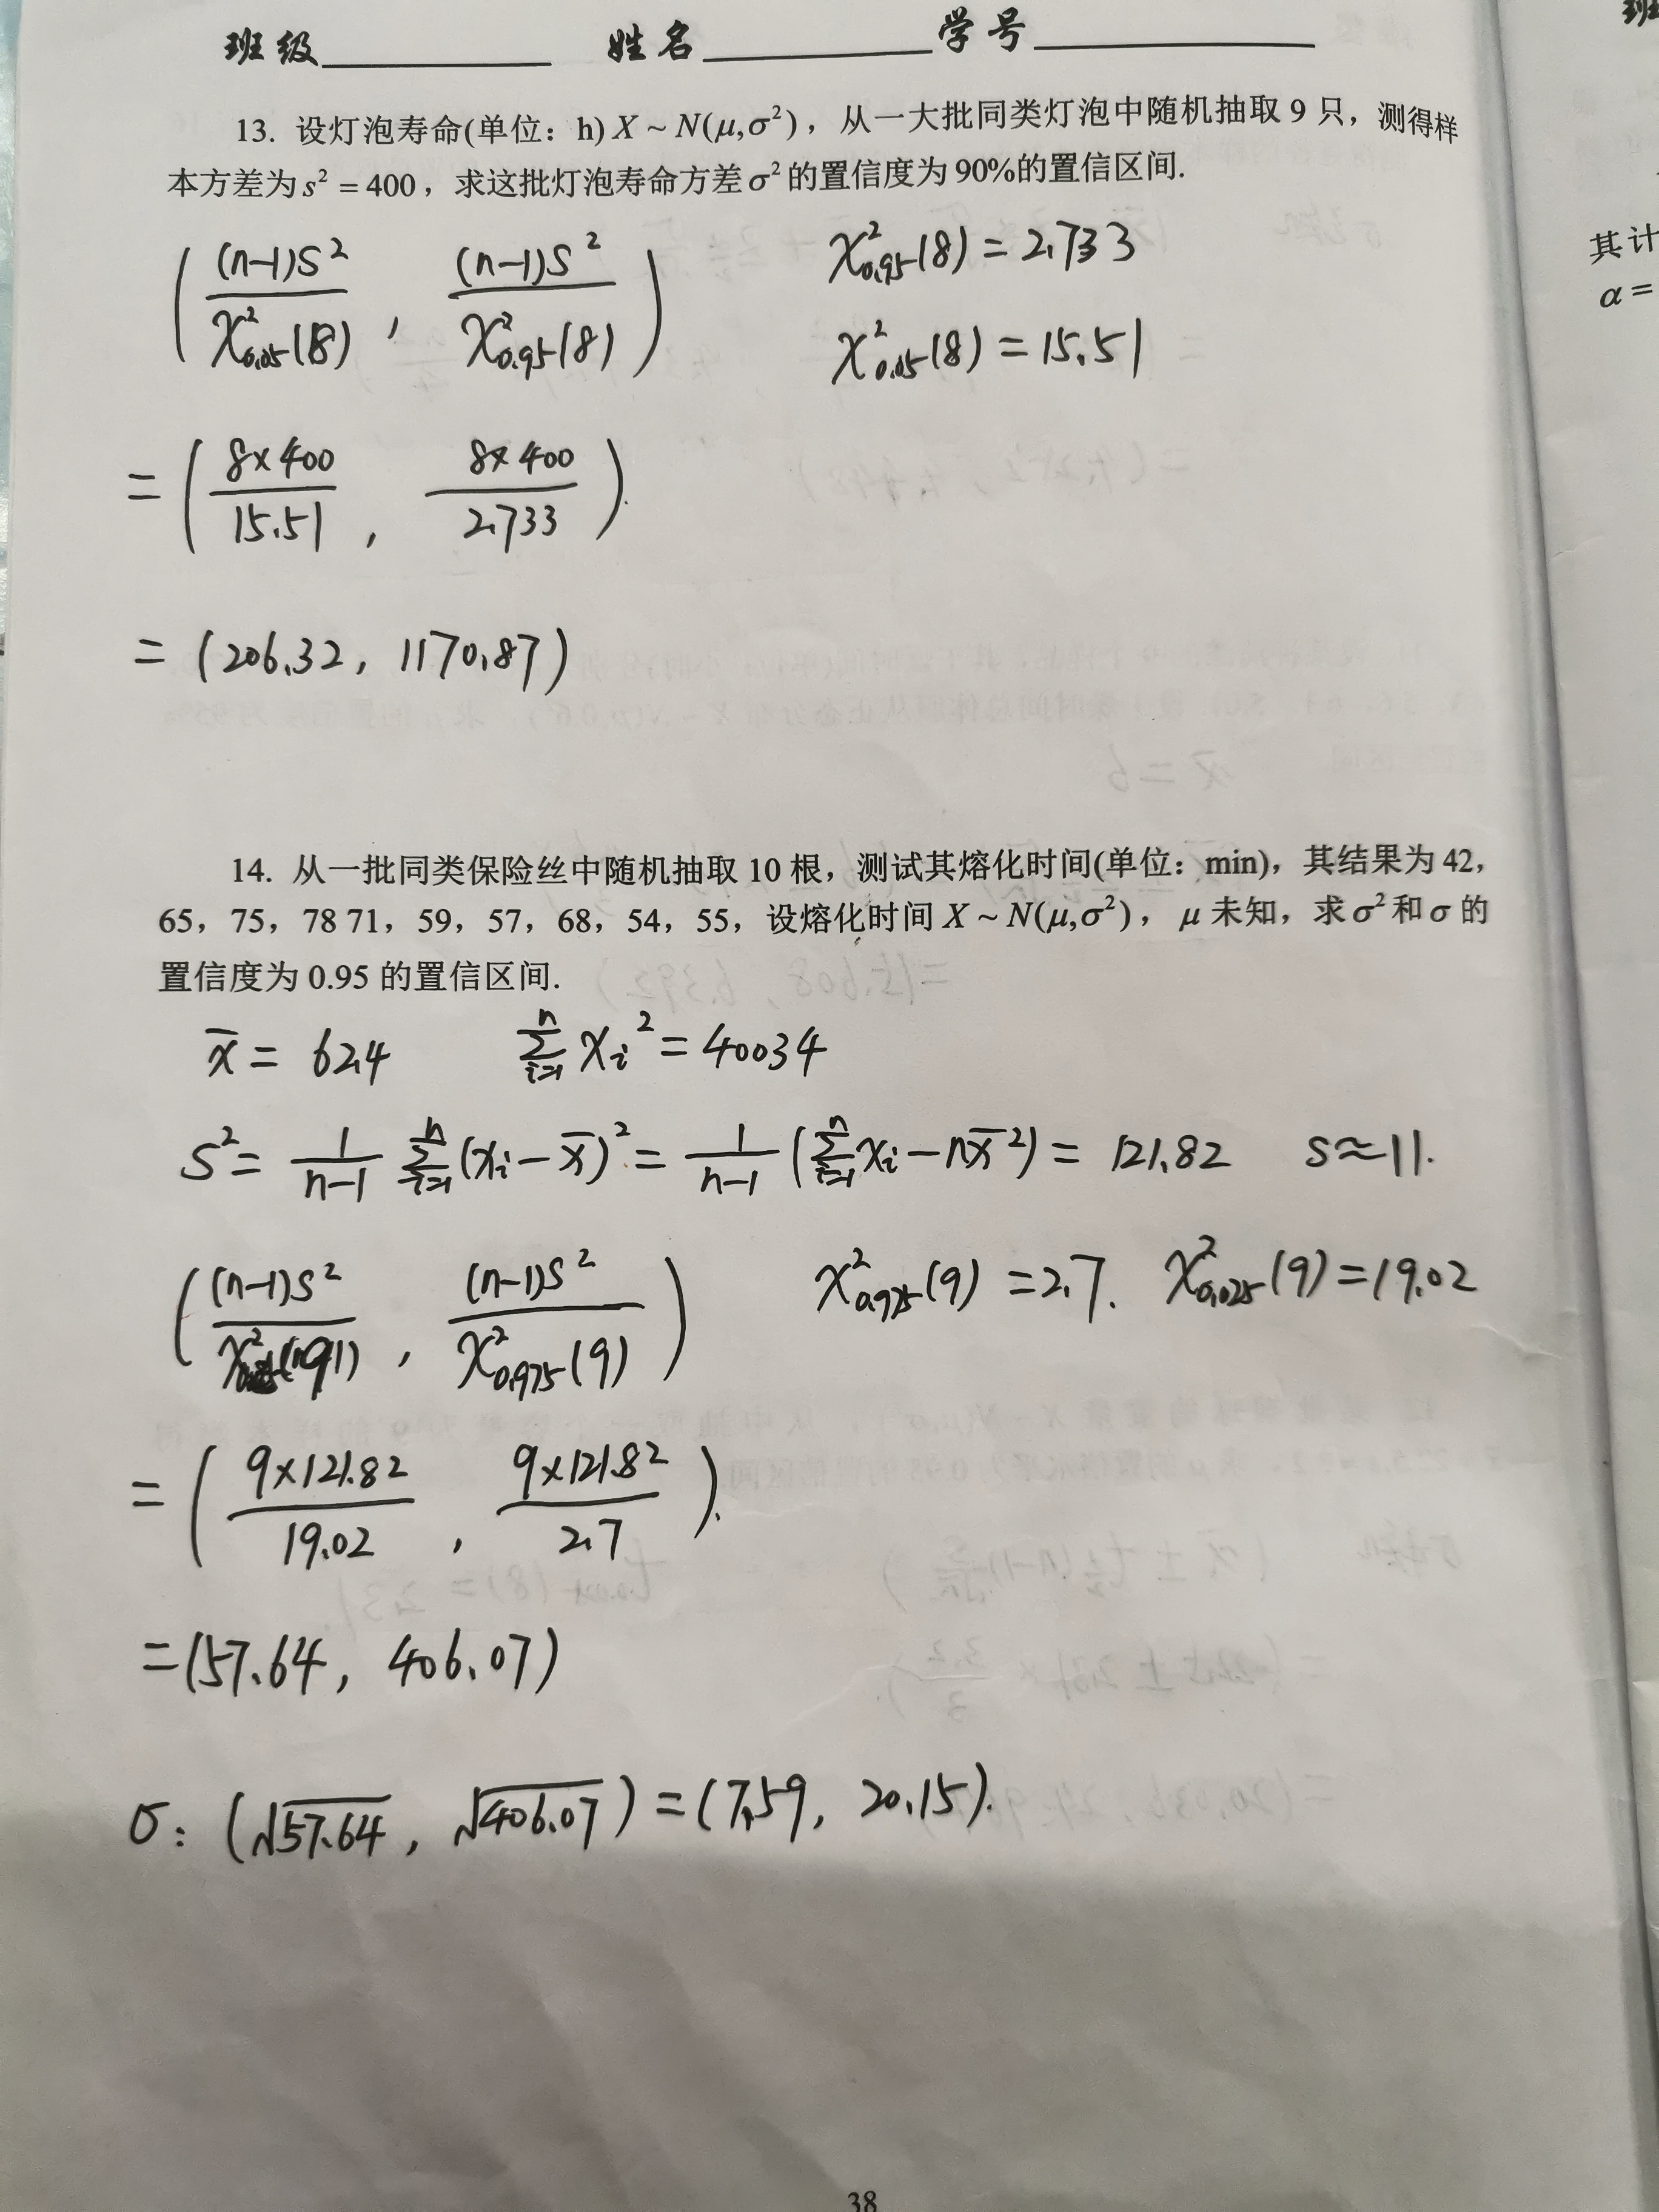 班级 姓名 学号
班
13. 设灯泡寿命(单位：h) X ~ N(μ,σ²)，从一大批同类灯泡中随机抽取 9 只，测得样
本方差为 s² = 400，求这批灯泡寿命方差 σ² 的置信度为 90%的置信区间.
其计
α =
( (n-1)S² / χ²₀.₀₅(8) , (n-1)S² / χ²₀.₉₅(8) )
χ²₀.₉₅(8) = 2.733
χ²₀.₀₅(8) = 15.51
= ( 8×400 / 15.51 , 8×400 / 2.733 ).
= (206.32, 1170.87)
14. 从一批同类保险丝中随机抽取 10 根，测试其熔化时间(单位：min)，其结果为 42，
65，75，78 71，59，57，68，54，55，设熔化时间 X ~ N(μ,σ²)， μ 未知，求 σ² 和 σ 的
置信度为 0.95 的置信区间.
x̄ = 62.4 ∑ᵢ₌₁ⁿ xᵢ² = 40034
S² = 1/(n-1) ∑ᵢ₌₁ⁿ (xᵢ - x̄)² = 1/(n-1) (∑ᵢ₌₁ⁿ xᵢ - nx̄²) = 121.82 S≈11.
( (n-1)S² / χ² (9) , (n-1)S² / χ²₀.₉₇₅(9) ) χ²₀.₉₇₅(9) = 2.7. χ²₀.₀₂₅(9) = 19.02
= ( 9×121.82 / 19.02 , 9×121.82 / 2.7 ).
= (57.64, 406.07)
σ: (√57.64, √406.07) = (7.59, 20.15).
38